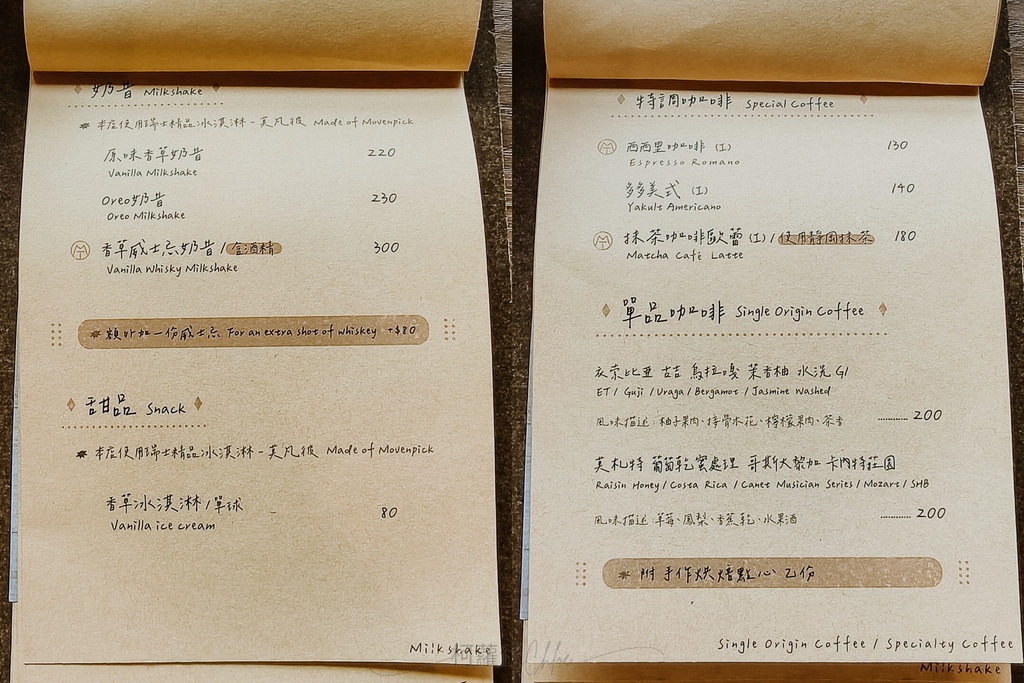 奶昔 Milkshake
✷ 本店使用瑞士精品冰淇淋-莫凡彼 Made of Movenpick
原味香草奶昔 220
Vanilla Milkshake
Oreo奶昔 230
Oreo Milkshake
香草威士忌奶昔/含酒精 300
Vanilla Whisky Milkshake
✷ 額外加一份威士忌 For an extra shot of whiskey +$80
甜品 Snack
✷ 本店使用瑞士精品冰淇淋-莫凡彼 Made of Movenpick
香草冰淇淋/單球 80
Vanilla ice cream
Milkshake
特調咖啡 Special Coffee
西西里咖啡 (I) 130
Espresso Romano
多多美式 (I) 140
Yakult Americano
抹茶咖啡歐蕾 (I) / 使用靜岡抹茶 180
Matcha Café Latte
單品咖啡 Single Origin Coffee
衣索比亞 古吉 烏拉嘎 茉香柚 水洗 G1
ET / Guji / Uraga / Bergamot / Jasmine Washed
風味描述:柚子果肉、接骨木花、檸檬果肉、茶香 ........... 200
莫札特 葡萄乾蜜處理 哥斯大黎加 卡內特莊園
Raisin Honey / Costa Rica / Canet Musician Series / Mozart / SHB
風味描述:草莓、鳳梨、香蕉乾、水果酒 ........... 200
✷ 附手作烘焙點心乙份
Single Origin Coffee / Specialty Coffee
Milkshake
柯蘿 Chloe